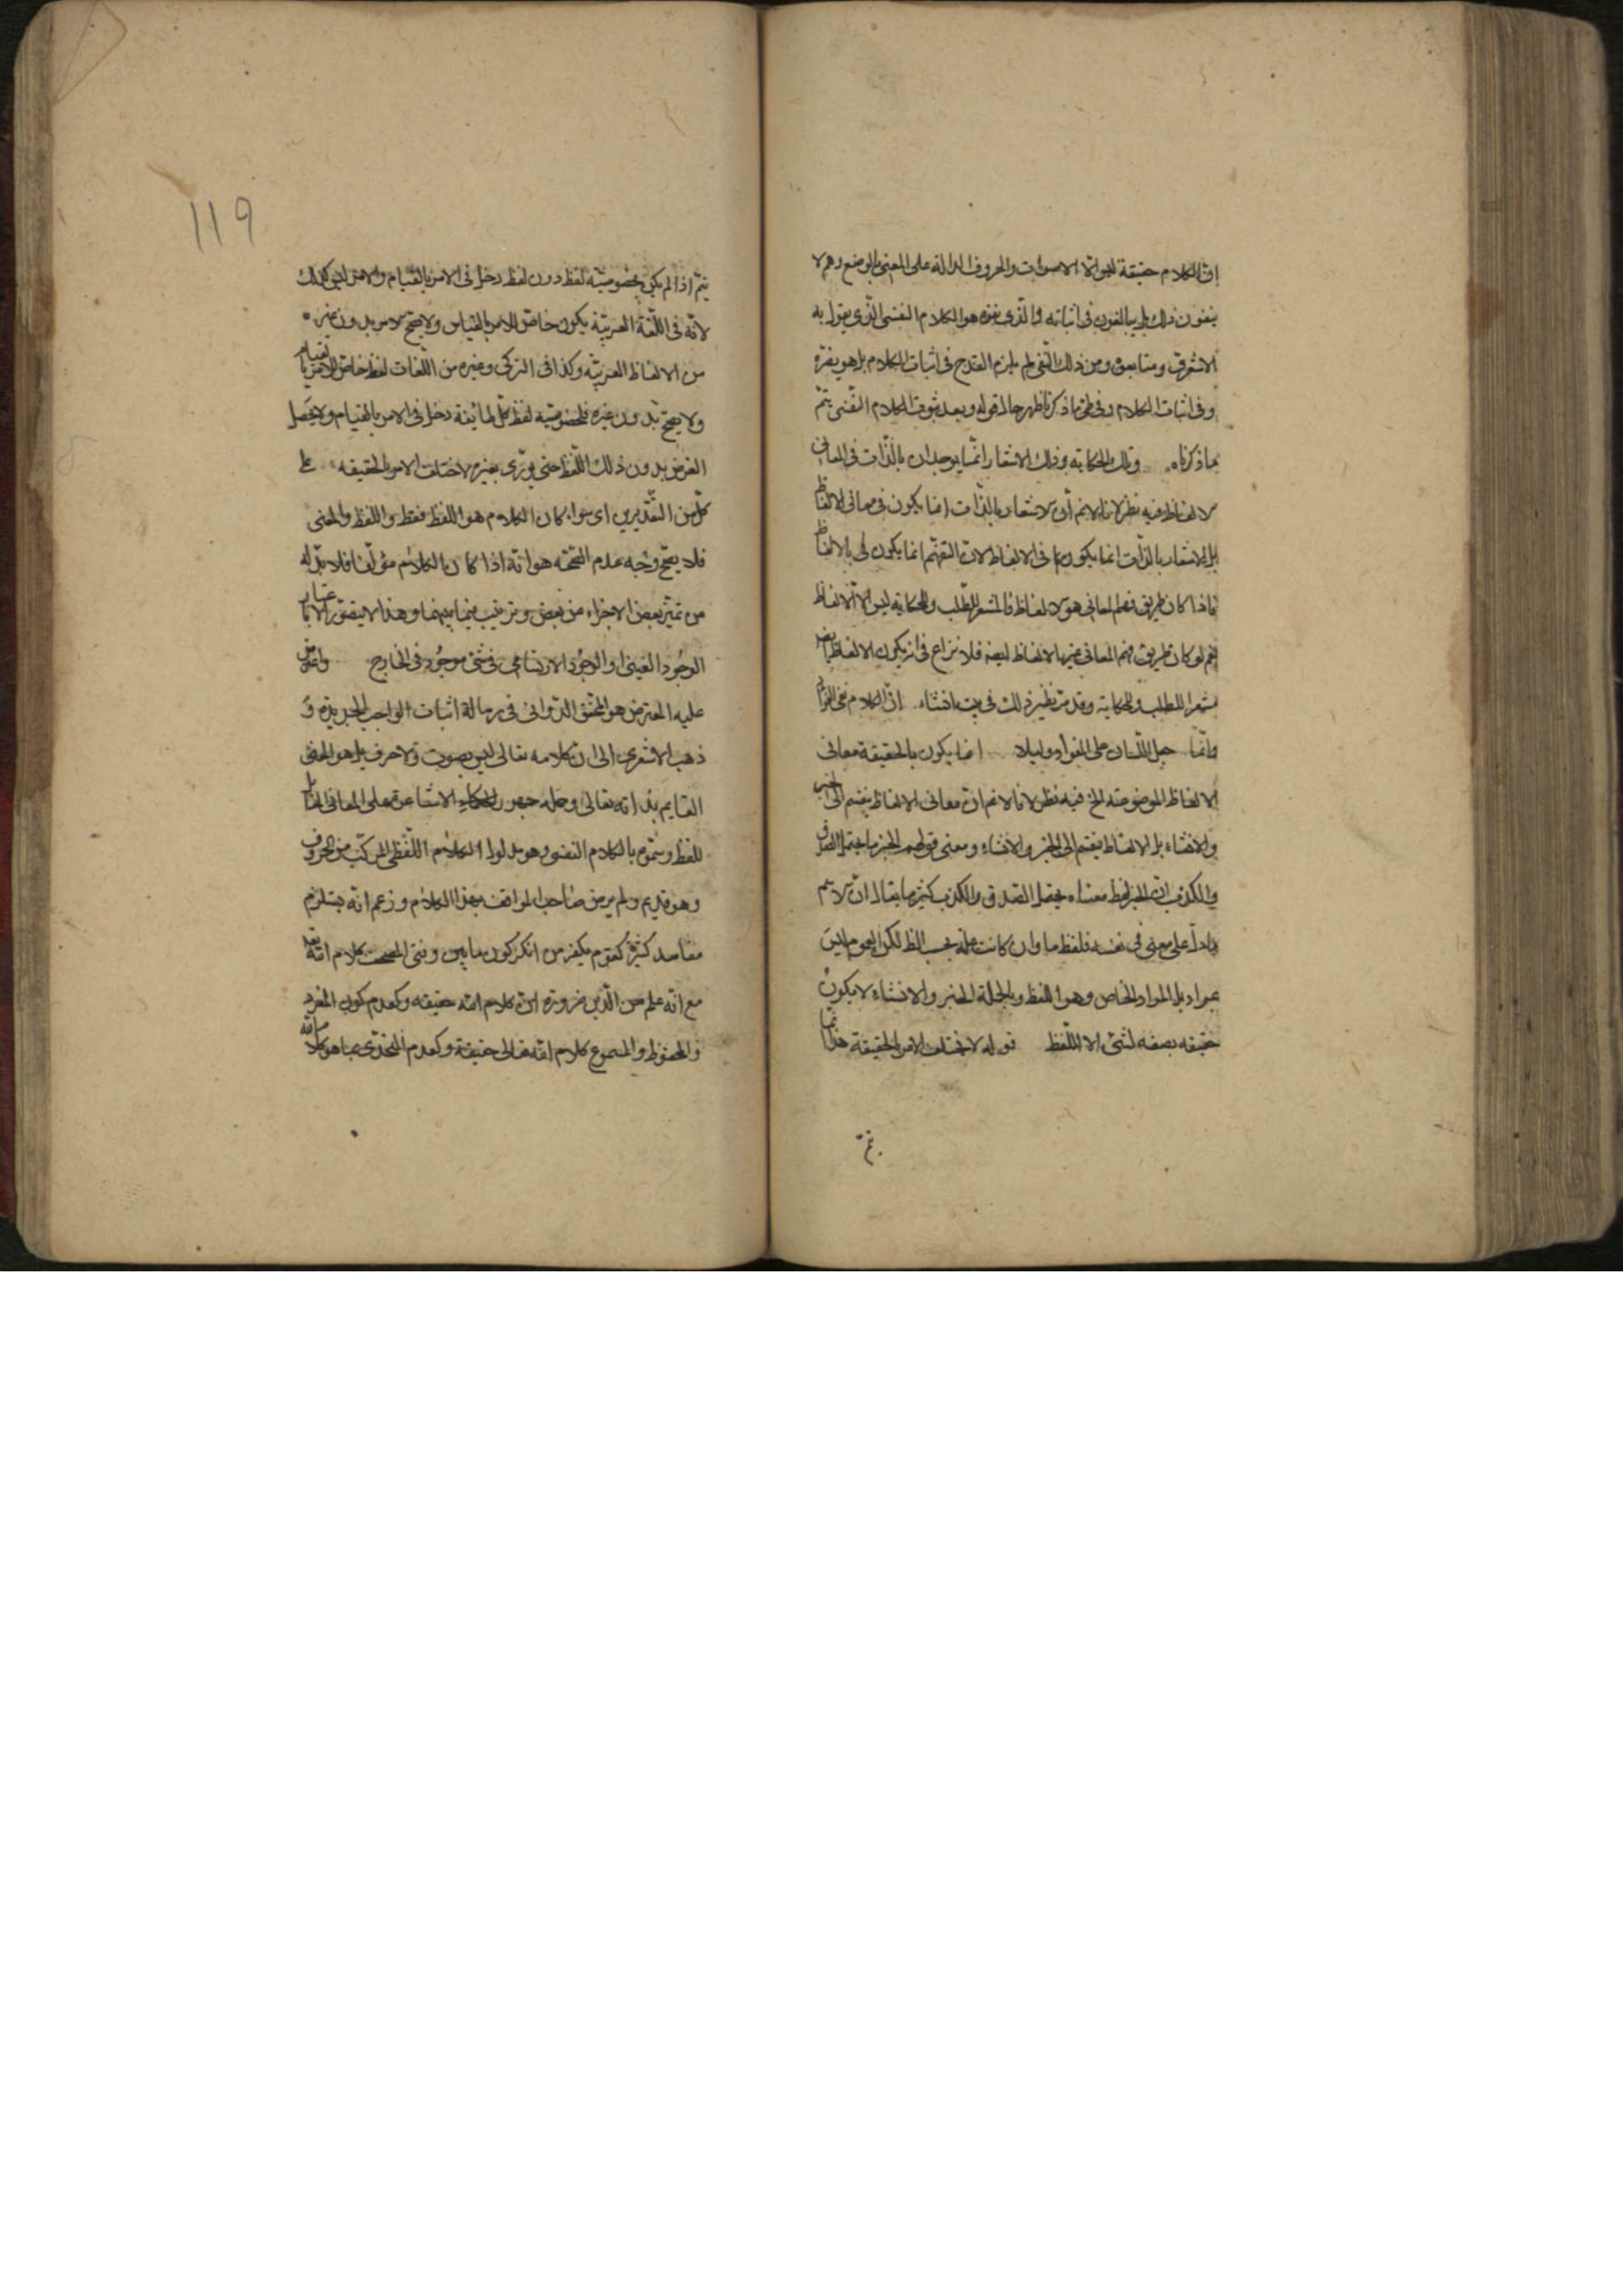 ان الكلام حقيقة ليس الا الاصوات والحروف الدالة على المعنى بالوضع وهم لا
ينفون ذلك بل يبالغون في اثباته والذي نفوه هو الكلام النفسي الذي يقول به
الاشعرى ومتابعوه ومن ذلك النفى لم يلزم القدح في اثبات الكلام بل هو يقرره
وفي اثبات الكلام وفي طى ما ذكرنا ظهر حال قوله وبعد ثبوت الكلام النفسى يتم
بما ذكرناه وتلك الحكاية وذلك الاشعار انما يوجدان بالذات في المعانى
الالفاظ فيه نظر لانا لا نم ان الاشعار بالذات انما يكون في معانى الالفاظ
بل الاشعار بالذات انما يكون في الالفاظ لان التفهم انما يكون بالالفاظ
فاذا كان طريق فهم المعانى هو الالفاظ فالمشعر للطلب والحكاية ليس الا الالفاظ
نعم لو كان طريق فهم المعانى غير الالفاظ ايضا فلا نزاع في ان يكون الالفاظ
مشعرا للطلب والحكاية وقد مر نظير ذلك في بيت انشاء ان الكلام لفى الفؤاد
وانما جعل اللسان على الفؤاد دليلا انما يكون بالحقيقة معانى
الالفاظ الموضوعة الخ فيه نظر لانا لا نم ان معانى الالفاظ ينقسم الى الخبر
والانشاء بل الالفاظ ينقسم الى الخبر والانشاء ومعنى قولهم الخبر ما يحتمل الصدق
والكذب ان الخبر لفظ معناه يحتمل الصدق والكذب كثير ما يقال ان الاسم
ما دل على معنى في نفسه فلفظ ما وان كانت عامة بحسب اللفظ لكن العموم ليس
بمراد بل المراد الخاص وهو اللفظ وبالجملة الخبر والانشاء لا يكون
حقيقه بصفه لشئ الا اللفظ قوله لا يختلف الامر بالحقيقة هذا انما
يتم
119
يتم اذا لم يكن بخصوصية لفظ دون لفظ دخل في الامر بالقيام والامر ليس كذلك
لانه في اللغة العربية يكون خاص الامر بالقياس ولا يصح الامر بدون غيره
من الالفاظ العربية وكذا في التركى وغيره من اللغات لفظ خاص للامر بالقيام
ولا يصح بدون غيره فلخصوصية لفظ كل طائفة دخل في الامر بالقيام ولا يحصل
الغرض بدون ذلك اللفظ حتى يؤدى بغيره لاختلف الامر بالحقيقه على
كل من التقديرين اى سواء كان الكلام هو اللفظ فقط واللفظ والمعنى
فلا يصح وجه عدم الصحة هو انه اذا كان الكلام مؤلفا فلا بد له
من تميز بعض الاجزاء من بعض وترتيب فيما بينهما وهذا لا يتصور الا باعتبار
الوجود العينى او الوجود الارتسامى في شئ موجود في الخارج واعترض
عليه المعترض هو المحقق الدوانى في رسالة اثبات الواجب الجديدة و
ذهب الاشعرى الى ان كلامه تعالى ليس بصوت ولا حرف بل هو المعنى
القايم بذاته تعالى وحمله جمهور الاشاعرة على المعانى المقابل
للفظ وسموه بالكلام النفسى وهو مدلول الكلام اللفظى المركب من الحروف
وهو قديم ولم يرض صاحب المواقف بهذا الكلام وزعم انه يستلزم
مفاسد كثيرة كعدم تكفير من انكر كون ما بين دفتى المصحف كلام الله تعالى
مع انه علم من الدين ضرورة ان كلام الله حقيقه وكعدم كون المقرو
والمحفوظ والمسموع كلام الله تعالى حقيقة وكعدم التحدى بما هو كلام الله